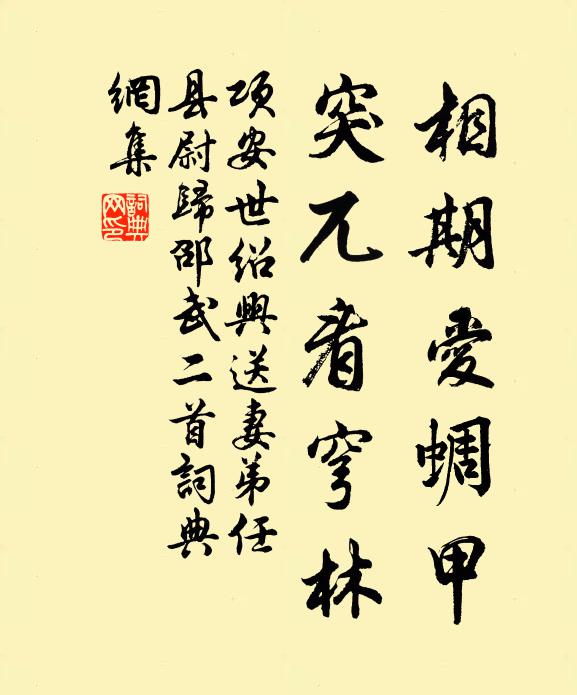 相期爱蜩甲
突兀看穹林
项安世绍興送妻弟任
县尉歸邵武二首詞典
網集
詞典網印